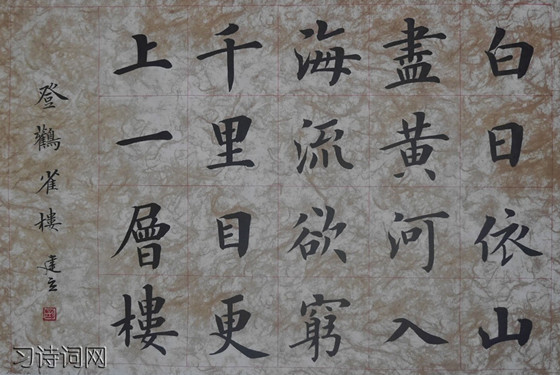 白日依山
盡黄河入
海流欲窮
千里目更
上一層樓
登鸛雀樓 建立
习诗词网